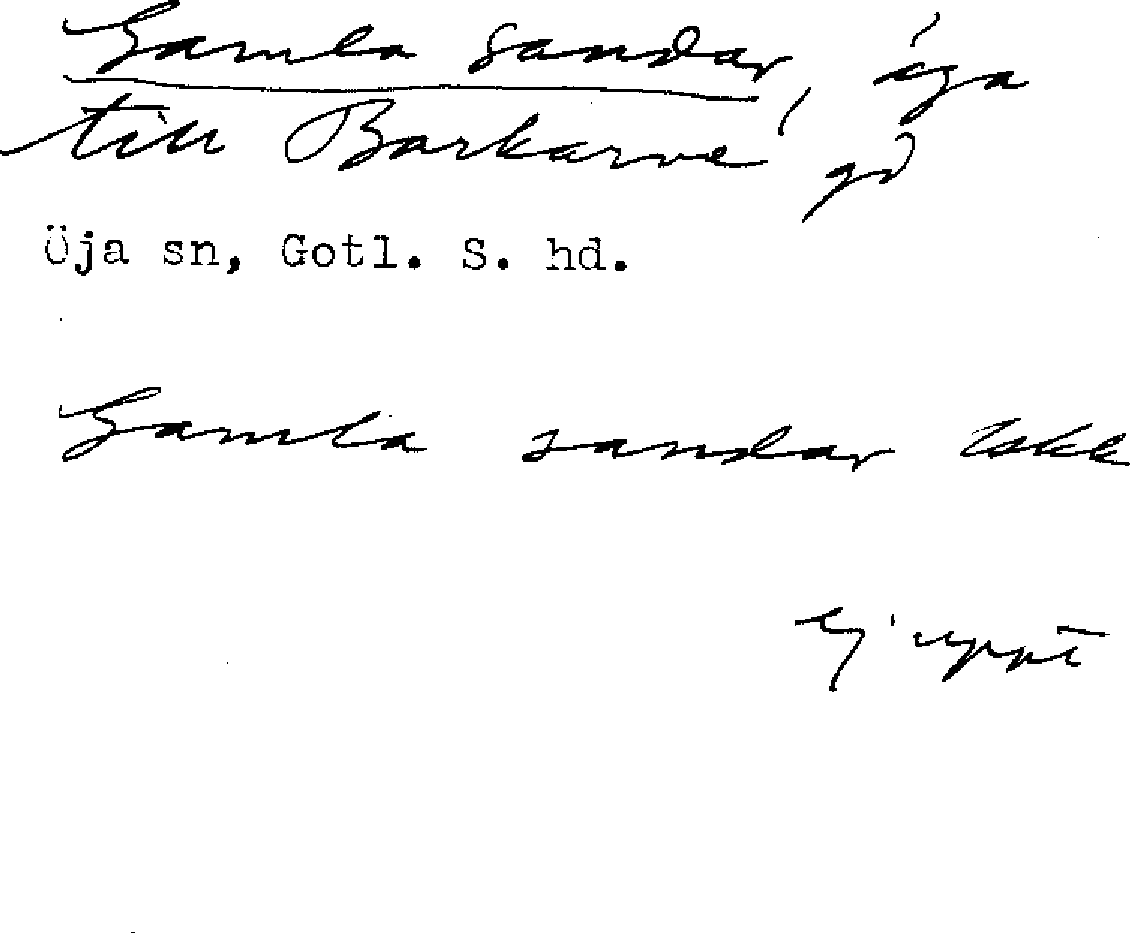 Gamla sandar, äga
till Barkarve, gd
Öja sn, Gotl. S. hd.
Gamla sandar
ej uppt